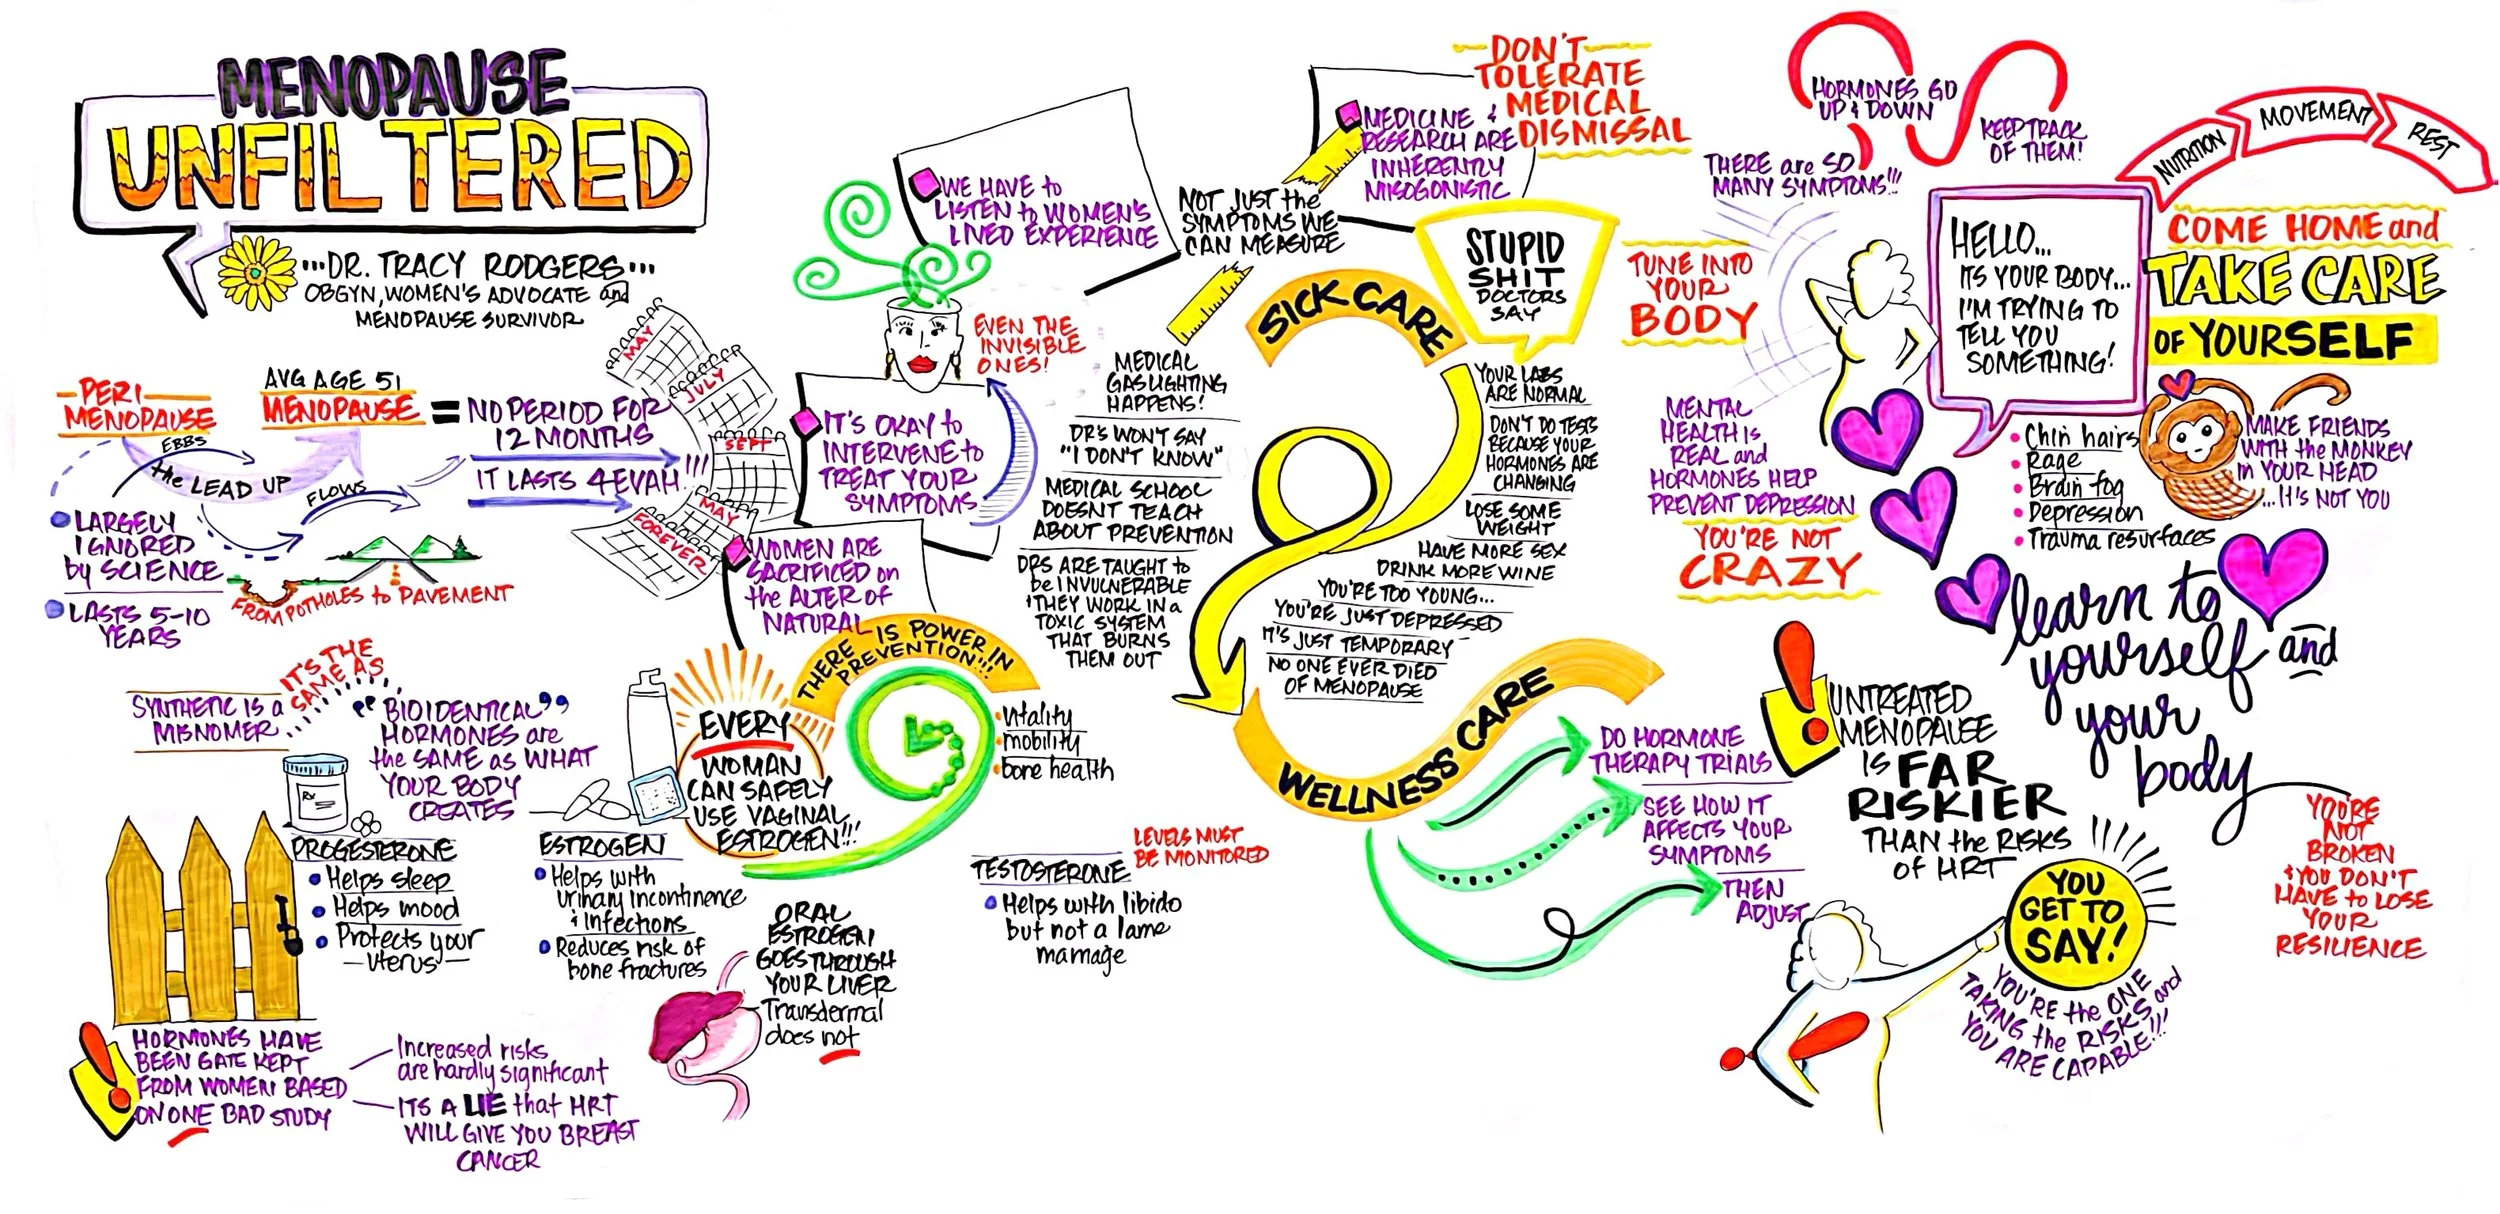 MENOPAUSE
UNFILTERED
...DR. TRACY RODGERS...
OBGYN, WOMEN'S ADVOCATE and
MENOPAUSE SURVIVOR
PERI
MENOPAUSE
EBBS
the LEAD UP
FLOWS
AVG AGE 51
MENOPAUSE = NO PERIOD FOR
12 MONTHS
IT LASTS 4EVAH!!!
LARGELY
IGNORED
by SCIENCE
LASTS 5-10
YEARS
FROM POTHOLES to PAVEMENT
MAY
JULY
SEPT
MAY
FOREVER
WE HAVE to
LISTEN to WOMEN'S
LIVED EXPERIENCE
EVEN THE
INVISIBLE
ONES!
IT'S OKAY to
INTERVENE to
TREAT YOUR
SYMPTOMS
WOMEN ARE
SACRIFICED on
the ALTER of
NATURAL
SYNTHETIC IS a
MISNOMER
IT'S THE
SAME AS
"BIOIDENTICAL"
HORMONES are
the SAME as WHAT
YOUR BODY
CREATES
Rx
PROGESTERONE
Helps sleep
Helps mood
Protects your
uterus
ESTROGEN
Helps with
urinary incontinence
& infections
Reduces risk of
bone fractures
EVERY
WOMAN
CAN SAFELY
USE VAGINAL
ESTROGEN!!!
THERE IS POWER IN
PREVENTION!!!
vitality
mobility
bone health
ORAL
ESTROGEN
GOES THROUGH
YOUR LIVER
Transdermal
does not
TESTOSTERONE
LEVELS MUST
BE MONITORED
Helps with libido
but not a lame
marriage
HORMONES HAVE
BEEN GATE KEPT
FROM WOMEN BASED
ON ONE BAD STUDY
Increased risks
are hardly significant
ITS A LIE that HRT
WILL GIVE YOU BREAST
CANCER
NOT JUST the
SYMPTOMS WE
CAN MEASURE
MEDICINE &
RESEARCH ARE
INHERENTLY
MISOGONISTIC
DON'T
TOLERATE
MEDICAL
DISMISSAL
MEDICAL
GASLIGHTING
HAPPENS!
DR'S WON'T SAY
"I DON'T KNOW"
MEDICAL SCHOOL
DOESN'T TEACH
ABOUT PREVENTION
DRS ARE TAUGHT to
be INVULNERABLE
& THEY WORK IN a
TOXIC SYSTEM
THAT BURNS
THEM OUT
SICK CARE
STUPID
SHIT
DOCTORS
SAY
YOUR LABS
ARE NORMAL
DON'T DO TESTS
BECAUSE YOUR
HORMONES ARE
CHANGING
LOSE SOME
WEIGHT
HAVE MORE SEX
DRINK MORE WINE
YOU'RE TOO YOUNG...
YOU'RE JUST DEPRESSED
IT'S JUST TEMPORARY
NO ONE EVER DIED
OF MENOPAUSE
WELLNESS CARE
DO HORMONE
THERAPY TRIALS
SEE HOW IT
AFFECTS YOUR
SYMPTOMS
THEN
ADJUST
HORMONES GO
UP & DOWN
KEEP TRACK
OF THEM!
THERE are SO
MANY SYMPTOMS!!!
TUNE INTO
YOUR
BODY
MENTAL
HEALTH is
REAL and
HORMONES HELP
PREVENT DEPRESSION
YOU'RE NOT
CRAZY
HELLO...
ITS YOUR BODY...
I'M TRYING TO
TELL YOU
SOMETHING!
NUTRITION
MOVEMENT
REST
COME HOME and
TAKE CARE
OF YOURSELF
Chin hairs
Rage
Brain fog
Depression
Trauma resurfaces
MAKE FRIENDS
WITH the MONKEY
in YOUR HEAD
...IT'S NOT YOU
learn to
yourself and
your
body
UNTREATED
MENOPAUSE
IS FAR
RISKIER
THAN the RISKS
of HRT
YOU
GET TO
SAY!
YOU'RE the ONE
TAKING the RISKS and
YOU ARE CAPABLE!!!
YOU'RE
NOT
BROKEN
& YOU DON'T
HAVE to LOSE
YOUR
RESILIENCE